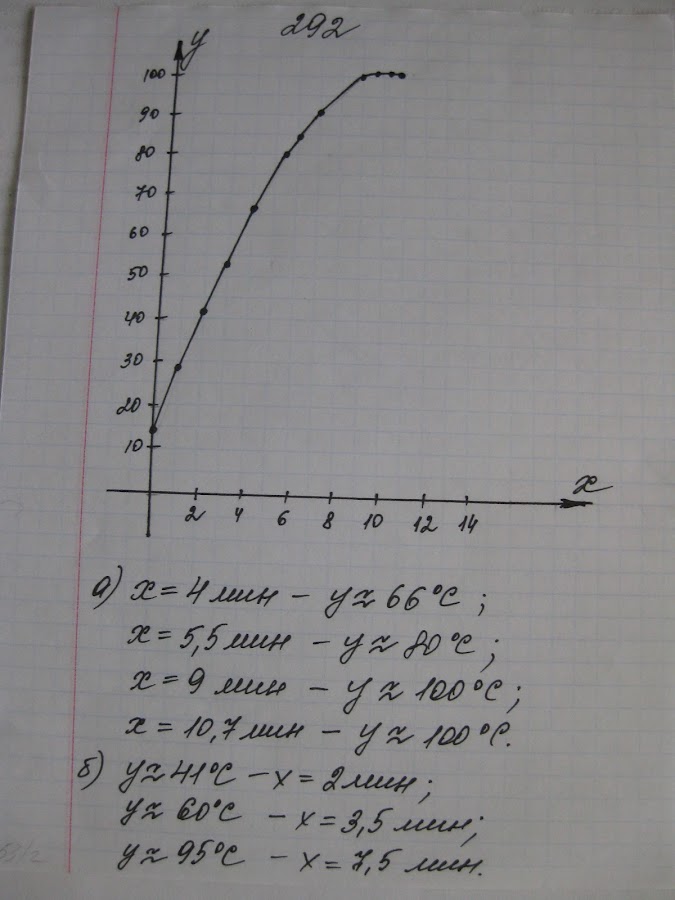 292
y
100
90
80
70
60
50
40
30
20
10
x
2 4 6 8 10 12 14
а) x = 4 мин – y ≈ 66°C ;
x = 5,5 мин – y ≈ 80°C ;
x = 9 мин – y ≈ 100°C ;
x = 10,7 мин – y ≈ 100°C.
б) y ≈ 41°C – x = 2 мин ;
y ≈ 60°C – x = 3,5 мин ;
y ≈ 95°C – x = 7,5 мин.